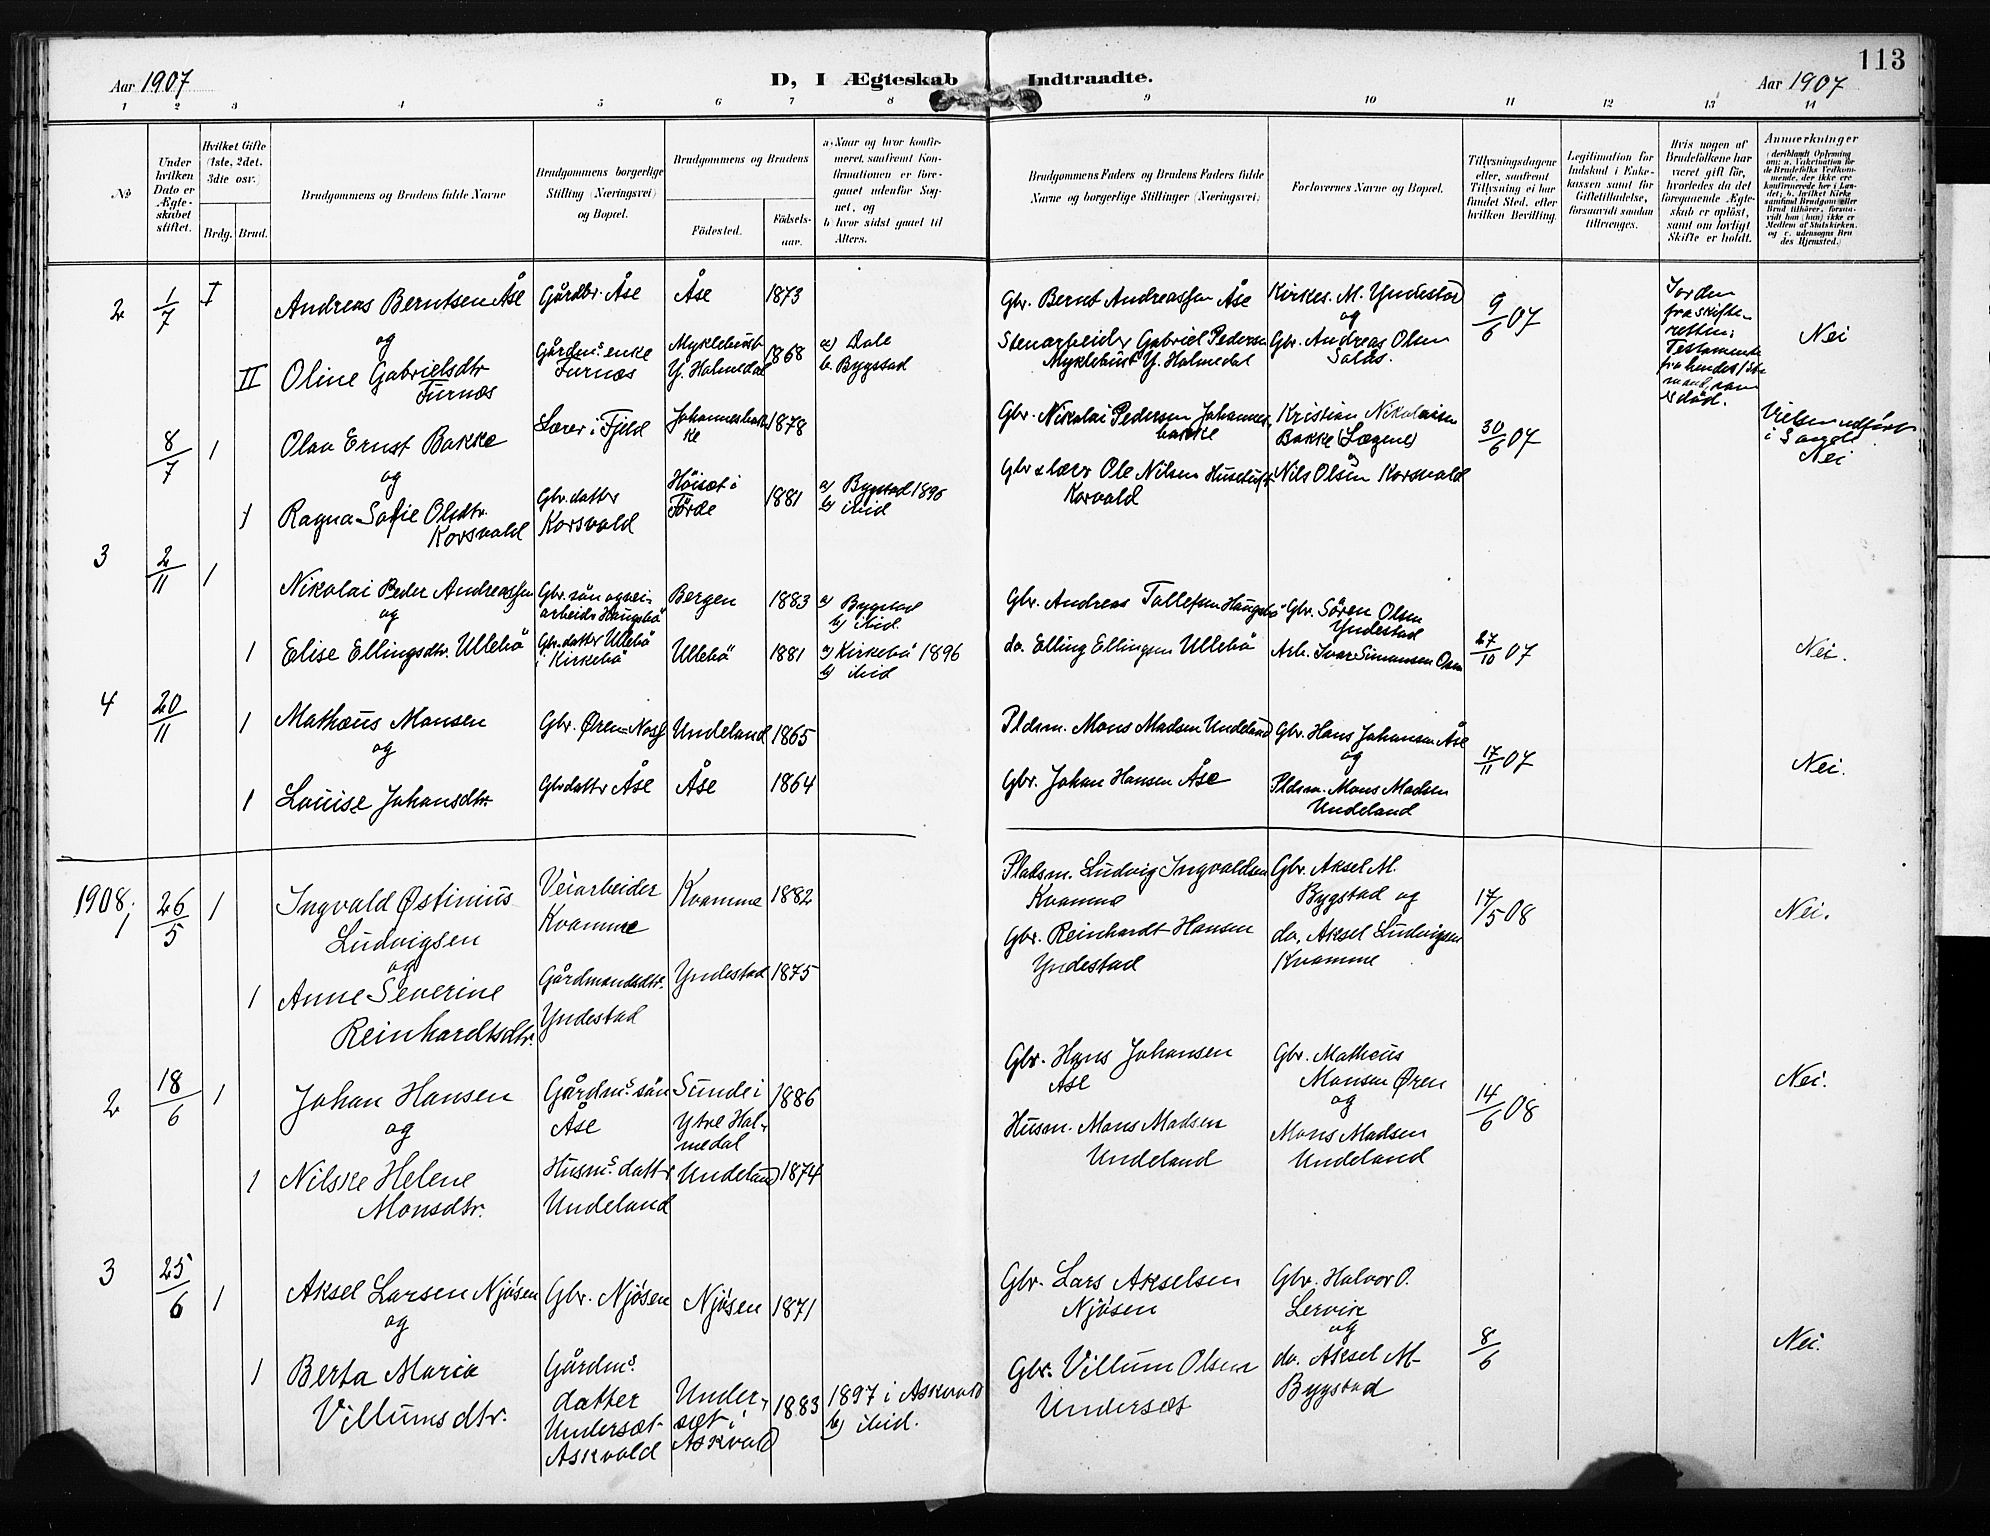 113
Aar 1907
D, I Ægteskab Indtraadte.
Aar 1907
1 2 3 4 5 6 7 8 9 10 11 12 13 14
№
Under
hvilken
Dato er
Ægte-
skabet
stiftet.
Hvilket Gifte
(1ste, 2det.
3die osv.)
Brdg. Brud.
Brudgommens og Brudens fulde Navne
Brudgommens borgerlige
Stilling (Næringsvei)
og Bopæl.
Brudgommens og Brudens
Fødested.
Fødsels-
aar.
a. Naar og hvor konfir-
meret, saafremt Kon-
firmationen er fore-
gaaet udenfor Sog-
net, og
b. hvor sidst gaaet til
Alters.
Brudgommens Faders og Brudens Faders fulde
Navne og borgerlige Stillinger (Næringsvei)
Forlovernes Navne og Bopæl.
Tillysningsdagene
eller, saafremt
Tillysning ei har
fundet Sted, efter
hvilken Bevilling.
Legitimation for
Indskud i Enke-
kassen samt for
Giftetilladelse,
forsaavidt saadan
tiltrænges.
Hvis nogen af
Brudefolkene har
været gift før,
hvorledes da det
foregaaende Ægte-
skab er opløst,
samt om lovligt
Skifte er holdt.
Anmærkninger
(deriblandt Oplysning
om: a. Vakcination for
de Brudefolks Vedkom-
mende, der ikke ere
konfirmerede her i Lan-
det; b. hvilket Kirke
samfund Brudgom eller
Brud tilhører, forsaa-
vidt han (hun) ikke er
Medlem af Statskirken.
og c. udensogns Bru
des Hjemsted.
2 1/7 I
Andreas Berntsen Åse
Gårdbr. Åse
Åse
1873
Gbr. Bernt Andreassen Åse
Kirkes. M. Yndestad
og
9/6 07
og
II Oline Gabrielsdtr
Furnæs
Gårdms. enke
Furnæs
Myklebust
Y. Holmedal
1868
a) Dale
b. Bygstad
Stenarbeider Gabriel Pedersen
Myklebust Y. Holmedal
Gbr. Andreas Olsen
fra skifte-
retten;
Testamente
er död.
Nei
8/7 1
Olav Ernst Bakke
Lærer i Fjeld
1878
Gbr. Nikolai Pedersen Johannes-
bakke
Kristian Nikolaisen
Bakke
30/6 07
Nei
og
1 Ragna Sofie Olsdtr.
Korsvold
Gbr. datter
Korsvold
i
Förde
1881
a) Bygstad 1896
b) ibid
Gbr & lærer Ole Nilsen
Korvald
Nils Olsen Korsvold
3 2/11 1
Nikolai Peder Andreassen
og
Gbr. sön og vei-
arbeider Haugsbö
Bergen
1883
a) Bygstad
b) ibid.
Gbr. Andreas Tollefsen Haugsbö
Gbr. Sören Olsen
Yndestad
1 Elise Ellingsdtr. Ullebö
Gbr. datter Ullebö
i Kirkebö
Ullebö
1881
a) Kirkebö 1896
b) ibid
do. Elling Ellingsen Ullebö
Arb. Ivar Simonsen Osen
27/10 07
Nei.
4 20/11 1
Mathæus Monsen
og
Gbr. Øren
Undeland
1865
Pldsm. Mons Madsen Undeland
Gbr. Hans Johansen Åse
og
17/11 07
Nei.
1 Louise Johansdtr
Gbrdattr Åse
Åse
1864
Gbr. Johan Hansen Åse
Pldsm. Mons Madsen
Undeland
1908.
1 26/5 1
Ingvald Østinius
Ludvigsen
og
Veiarbeider
Kvamme
Kvamme
1882
Pladsm. Ludvig Ingvaldsen
Kvamme
Gbr. Aksel M.
Bygstad og
17/5 08
Nei.
1 Anne Severine
Reinhardtsdtr.
Gårdmandsdtr.
Yndestad
Yndestad
1875
Gbr. Reinhardt Hansen
Yndestad
do. Aksel Ludvigsen
Kvamme
2 18/6 1
Johan Hansen
og
Gårdms. sön
Åse
Sunde i
Ytre Hol-
medal
1886
Gbr. Hans Johansen
Åse
Gbr. Matheus
Monsen Øren
og
14/6 08
Nei.
1 Nilske Helene
Monsdtr.
Husms. dattr
Undeland
Undeland
1874
Husm. Mons Madsen
Undeland
Mons Madsen
Undeland
3 25/6 1
Aksel Larsen Njösen
og
Gbr. Njösen
Njösen
1871
Gbr. Lars Akselsen
Njösen
Gbr. Halvor O.
Lervik
og
8/6
Nei.
1 Berta Maria
Villumsdtr.
Gårdms.
datter
Undersæt
Askvold
Under-
sæt i
Askvold
1883
1897 i Askvold
b) ibid.
Gbr. Villum Olsen
Undersæt
do. Aksel M.
Bygstad